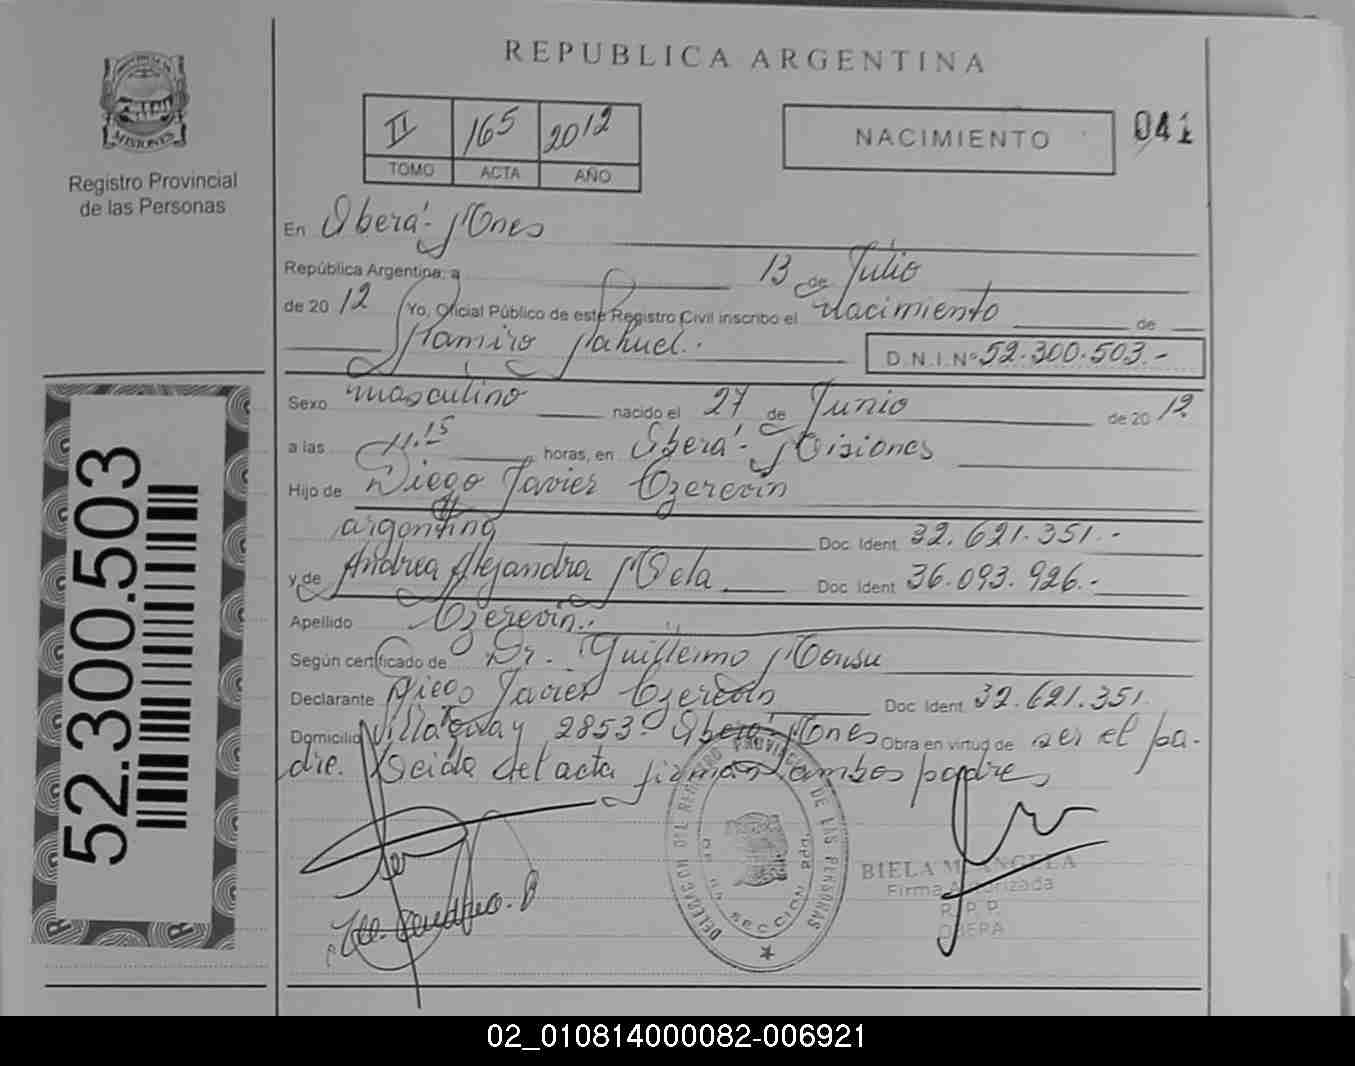 REPUBLICA ARGENTINA
MISIONES
Registro Provincial
de las Personas
II 165 2012
TOMO ACTA AÑO
NACIMIENTO
041
En Oberá - Mnes
República Argentina, a 13 de Julio
de 2012 Yo, Oficial Público de este Registro Civil inscribo el nacimiento de
Ramiro Nahuel.
D.N.I. Nº 52.300.503.-
Sexo masculino nacido el 27 de Junio de 2012
a las 11.15 horas, en Oberá - Misiones
Hijo de Diego Javier Czerevin
argentino Doc. Ident. 32.621.351.-
y de Andrea Alejandra Mela Doc. Ident. 36.093.926.-
Apellido Czerevin.
Según certificado de Dr. Guillermo
Declarante Diego Javier Czerevin Doc. Ident. 32.621.351.
Domicilio 2853 - Oberá - Mnes Obra en virtud de ser el pa-
dre. Leida del acta firman ambos padres
52.300.503
DELEGACION DEL REGISTRO PROVINCIAL DE LAS PERSONAS
SECCION
BIELA M. ANGELA
Firma Autorizada
R. P. P.
OBERA
02_010814000082-006921